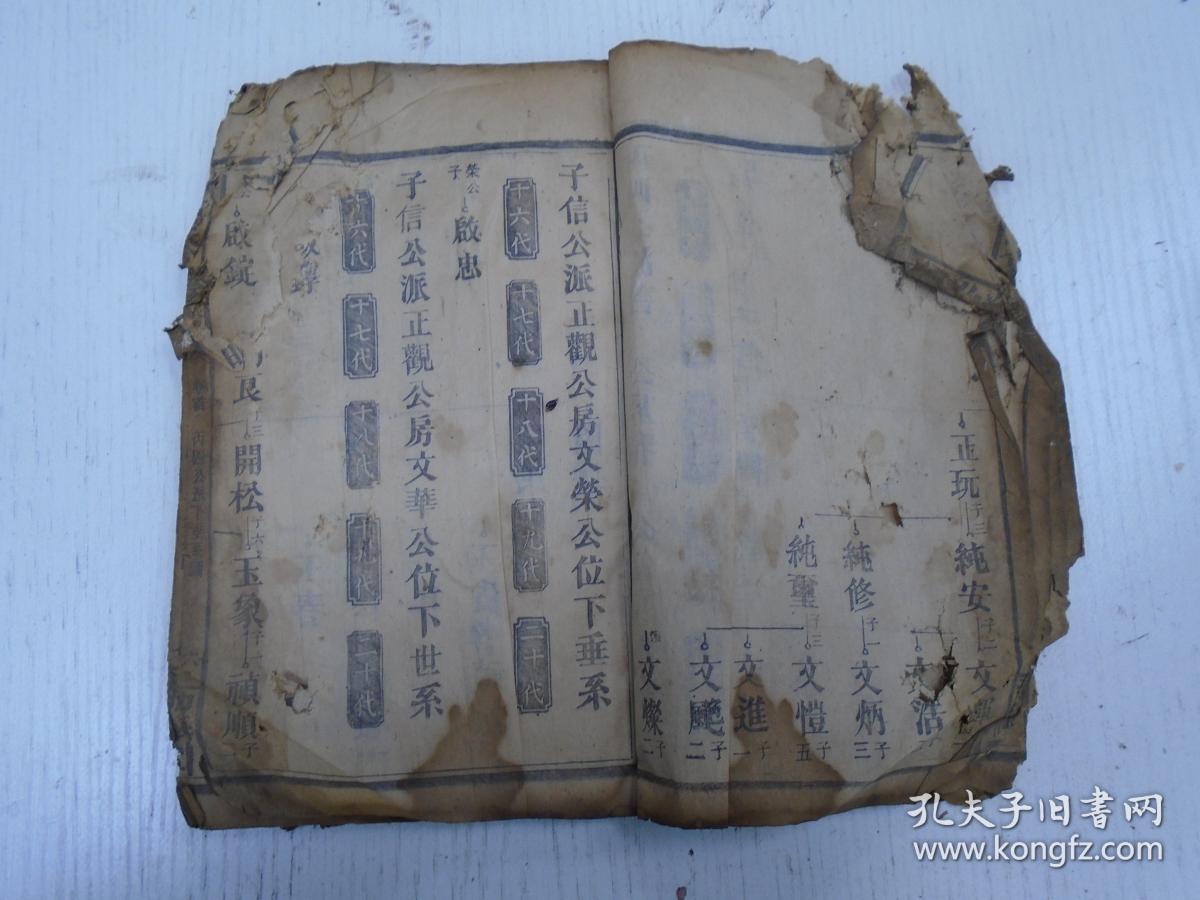 正玩 子三 純安 子二 文
文浩 子
純修 子一 文炳 子三
純聖 子三 文愷 子五
文進 子一
文颺 子二
文燦 子二
子信公派正觀公房文榮公位下垂系
十六代 十七代 十八代 十九代 二十代
榮公子 啟忠
子信公派正觀公房文華公位下世系
十六代 十七代 十八代 十九代 二十代
啟錠 良 子三 開松 子六 玉象 子一 禎順 子二
孔夫子旧书网
www.kongfz.com